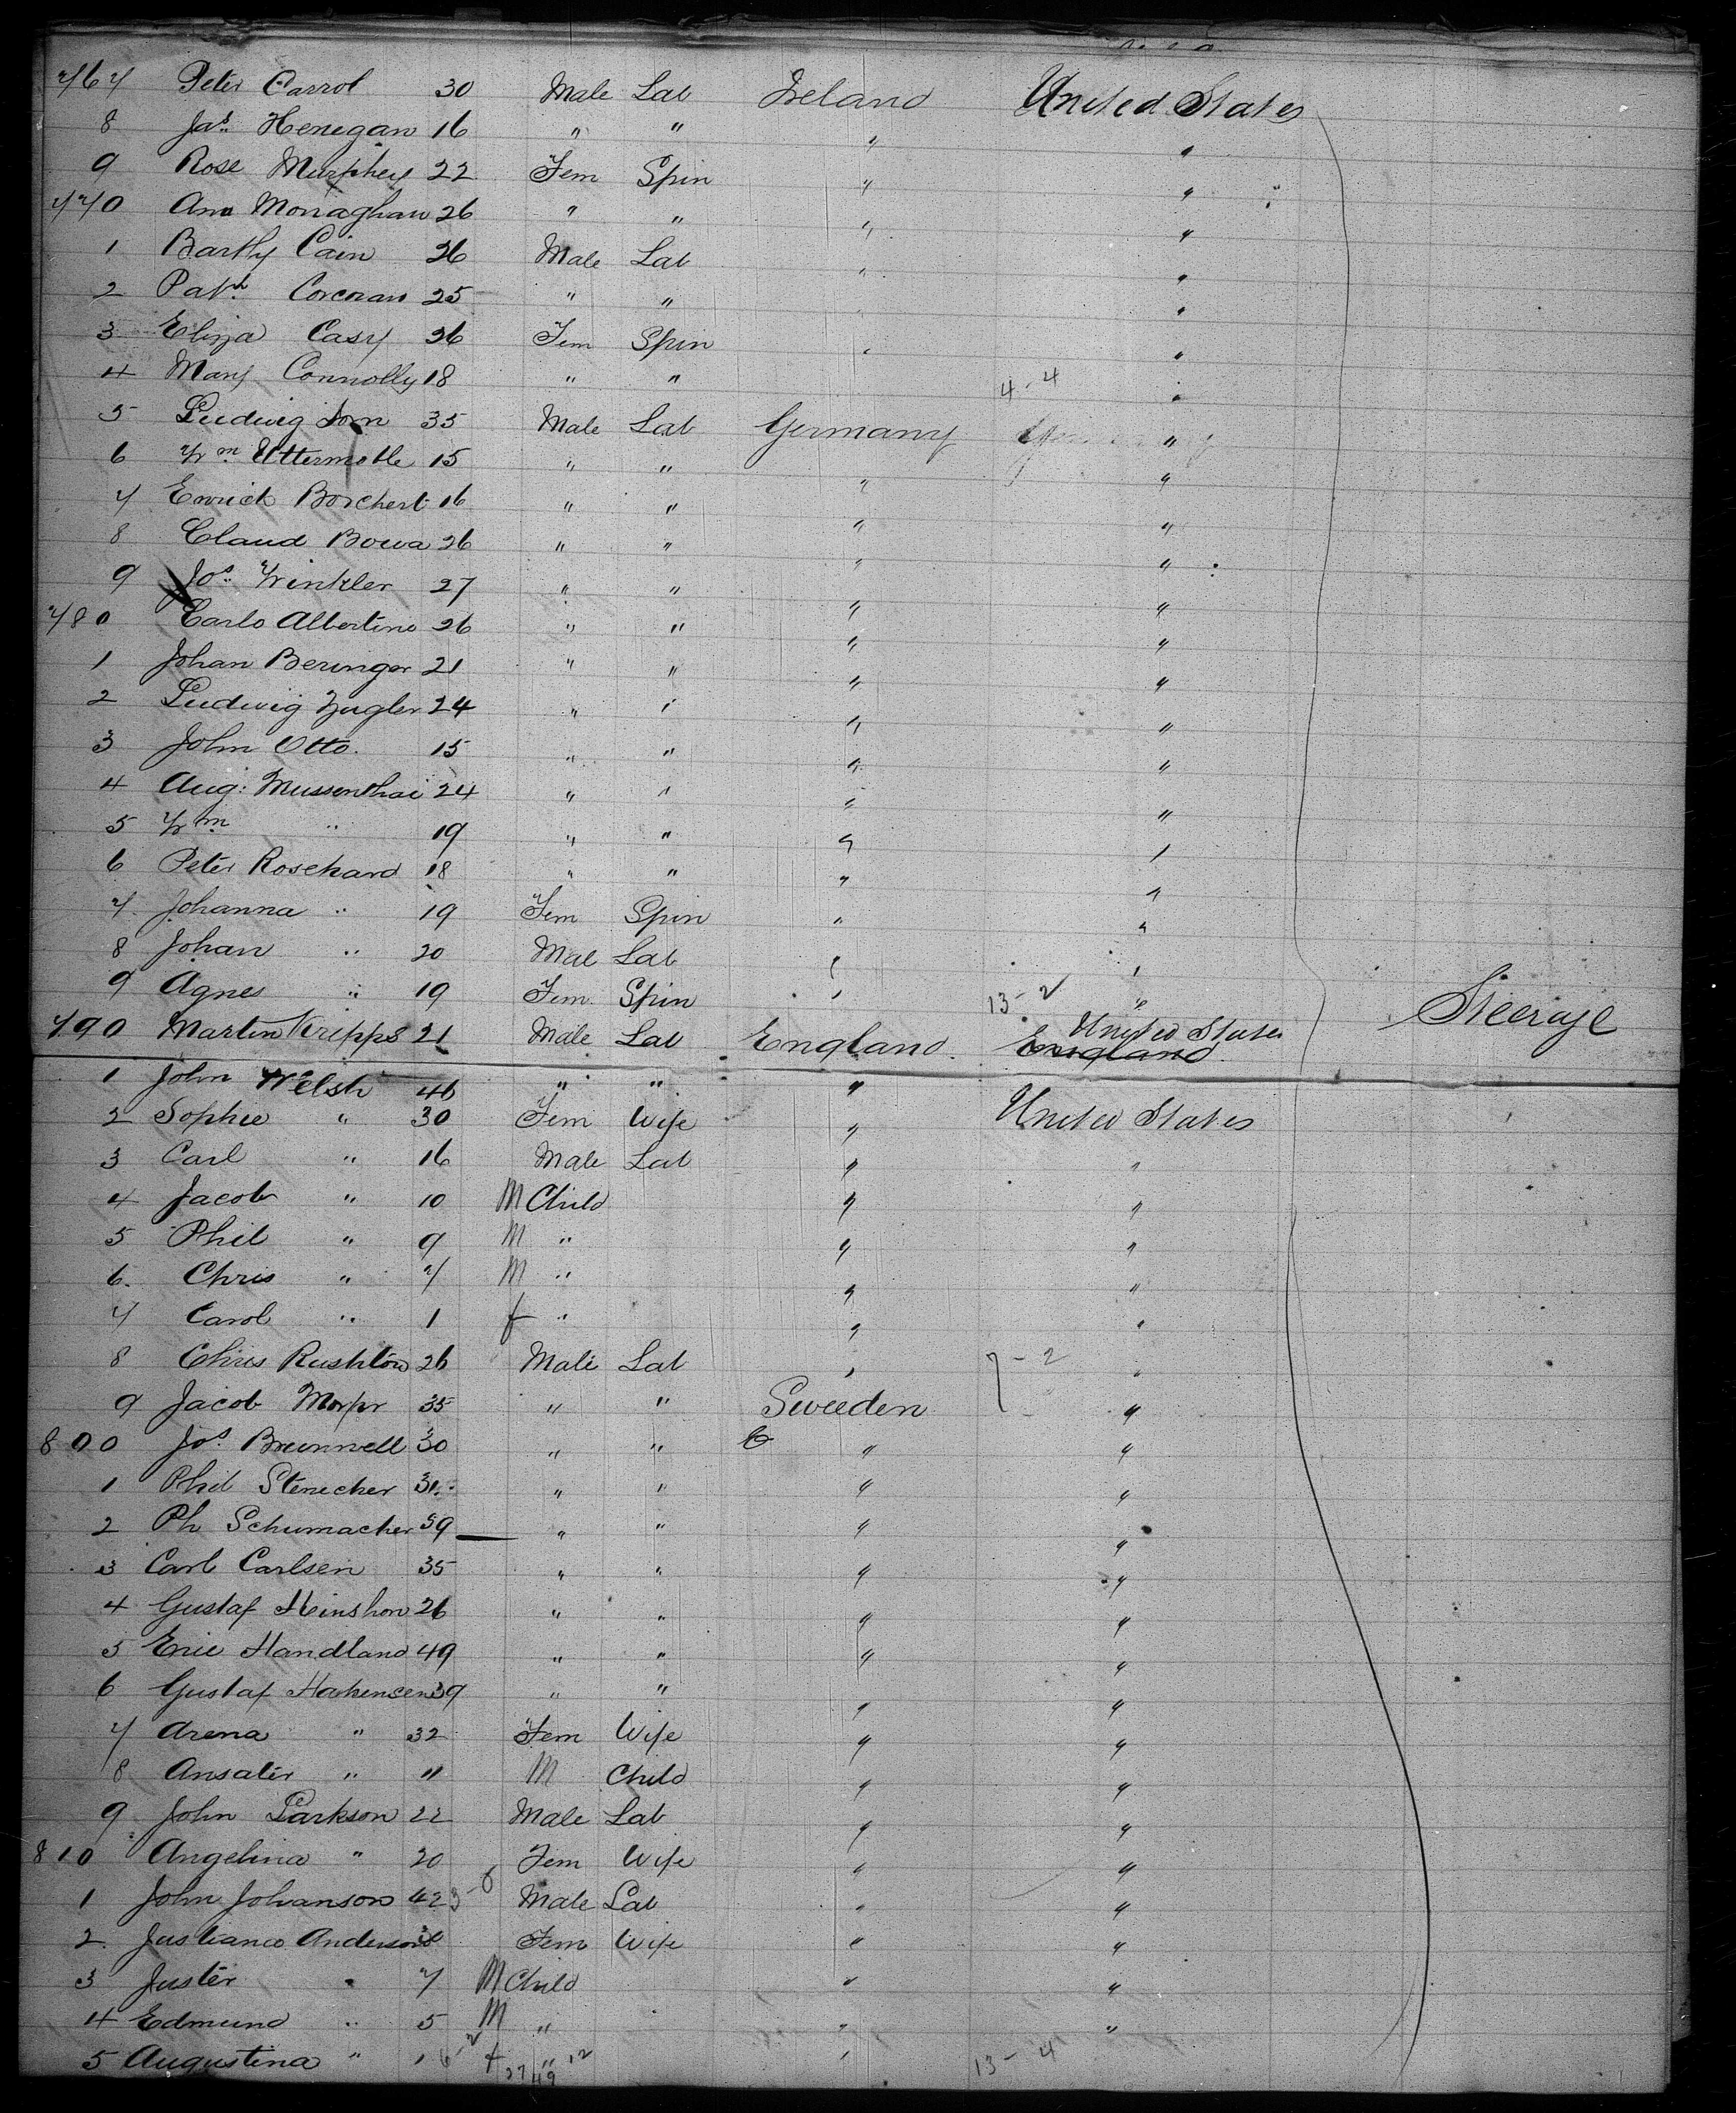 767 Peter Carrol 30 Male Lab Ireland United States
8 Jas. Henegan 16 " " " "
9 Rose Murphey 22 Fem Spin " "
770 Ann Monaghan 26 " " " "
1 Bartly Cain 26 Male Lab " "
2 Patk. Corcoran 25 " " " "
3 Eliza Casy 26 Fem Spin " "
4 Mary Connolly 18 " " 4-4 "
5 Ludwig 35 Male Lab Germany "
6 Wm Uttermohle 15 " " " "
7 Enrich Borchert 16 " " " "
8 Claud Bowa 26 " " " "
9 Jos. Winkler 27 " " " "
780 Carlo Albertino 26 " " " "
1 Johan Beringer 21 " " " "
2 Ludwig Zugler 24 " " " "
3 John Otto. 15 " " " "
4 Aug: Mussenthai 24 " " " "
5 Wm " 19 " " " "
6 Peter Rosehand 18 " " " "
7 Johanna " 19 Fem Spin " "
8 Johan " 20 Mal Lab " "
9 Agnes " 19 Fem. Spin " 13-2 " Steerage
790 Martin Kripps 21 Male Lab England. United States England
1 John Welsh 46 " " "
2 Sophie " 30 Fem Wife " United States
3 Carl " 16 Male Lab " "
4 Jacob " 10 M Child " "
5 Phil " 9 M " " "
6. Chris " 7 M " " "
7 Carol " 1 f " " "
8 Chris Rushton 26 Male Lab " 7-2 "
9 Jacob 35 " " Sweden "
800 Jos. Brunnell 30 " " " "
1 Phil Stenecher 31 " " " "
2 Ph Schumacher 39 " " " "
3 Carl Carlsen 35 " " " "
4 Gustaf Heinshon 26 " " " "
5 Eric Handland 49 " " " "
6 Gustaf Hakensen 39 " " " "
7 Arena " 32 Fem Wife " "
8 Ansater " 11 M Child " "
9 John Larkson 22 Male Lab " "
810 Angelina " 20 Fem Wife " "
1 John Johanson 42 Male Lab " "
2. Justiana Anderson Fem Wife " "
3 Juster " 7 M Child " "
4 Edmund " 5 M " " "
5 Augustina " 1 6-2 f " 12 " 13-4
27 49